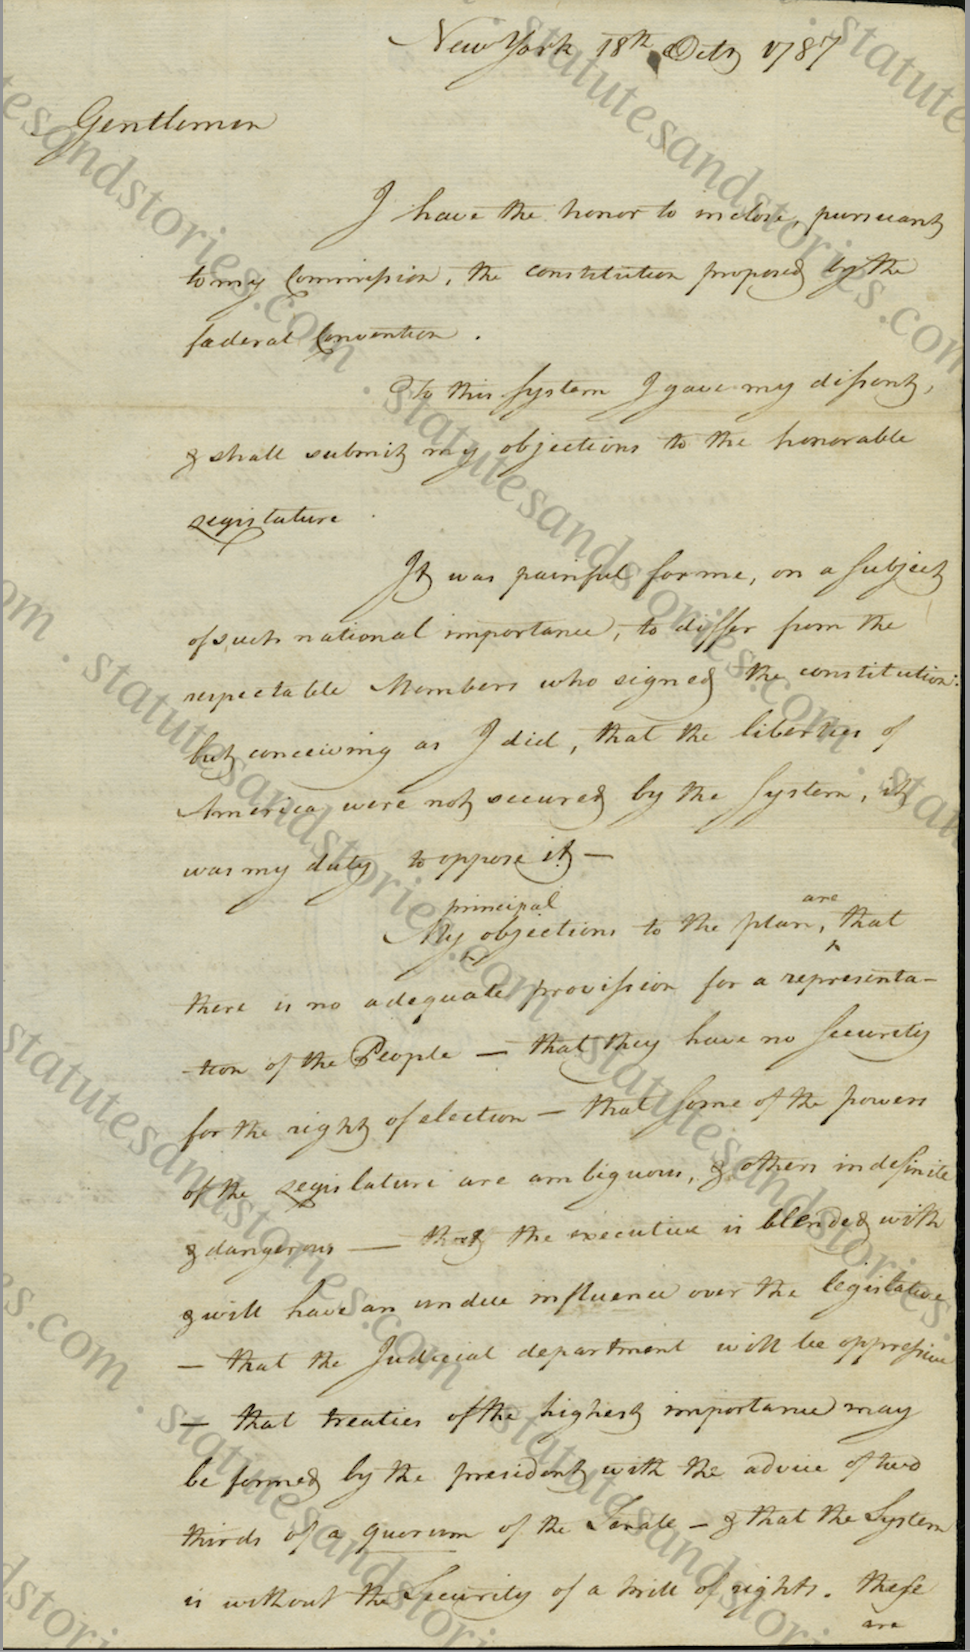 New York 18th Octr 1787
Gentlemen
I have the honor to inclose, pursuant
to my Commission, the constitution proposed by the
fæderal Convention.
To this System I gave my dissent,
& shall submit my objections to the honorable
Legislature.
It was painful for me, on a Subject
of such national importance, to differ from the
respectable Members who signed the constitution:
but conceiving as I did, that the liberties of
America were not secured by the System, it
was my duty to oppose it —
principal are
My objections to the plan, that
there is no adequate provission for a representa-
-tion of the People — that they have no Security
for the right of election — that some of the powers
of the Legislature are ambiguous, & others indefinite
& dangerous — that the executive is blended with
& will have an undue influence over the legislative
— that the Judicial department will be oppressive
— that treaties of the highest importance may
be formed by the president with the advice of two
thirds of a quorum of the Senate — & that the System
is without the Security of a bill of rights. these
are
statutesandstories.com